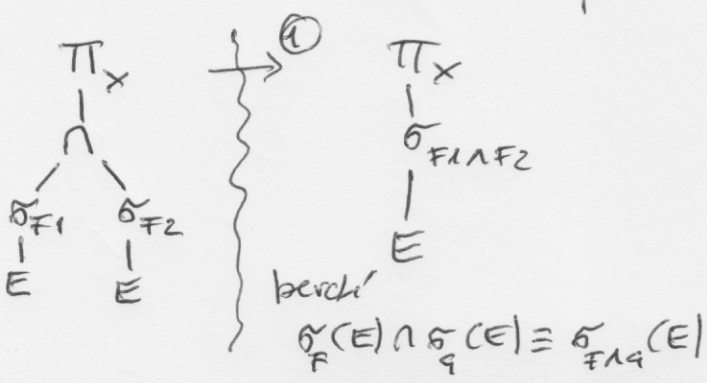 ①
Π_X
∩
σ_F1 σ_F2
E E
Π_X
σ_F1∧F2
E
perché
σ_F(E) ∩ σ_G(E) ≡ σ_F∧G(E)